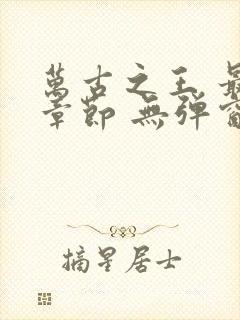 萬古之王 最
章節 無彈窗
摘星居士